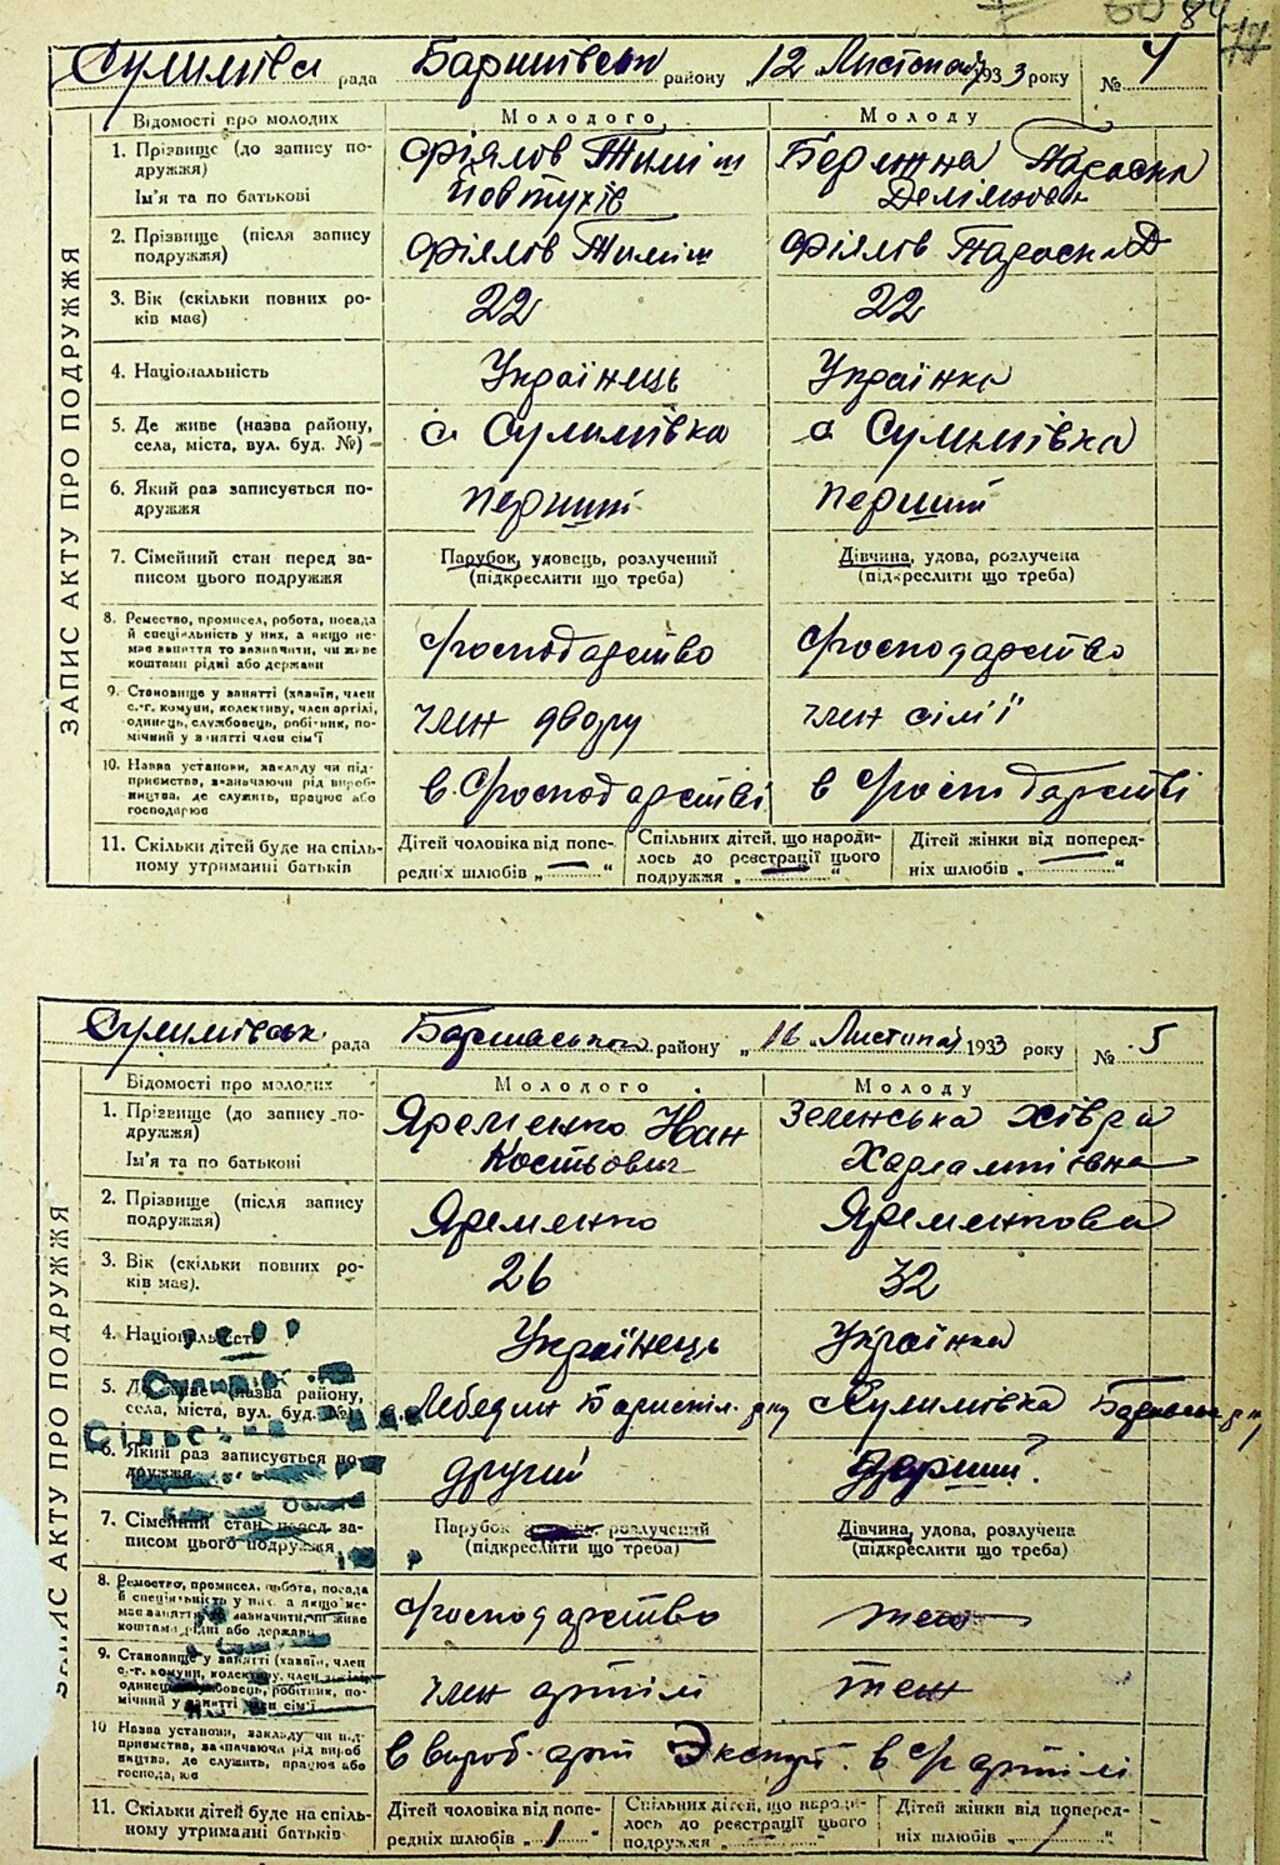 84
77
Сулимівс рада Баришівськ району „12 „Листопад 1933 року № 4
ЗАПИС АКТУ ПРО ПОДРУЖЖЯ
Відомості про молодих
Молодого
Молоду
1. Прізвище (до запису по-
дружжя)
Ім'я та по батькові
Фіялов Тиміш
Йовтухів
Бережна Параска
Демяновн
2. Прізвище (після запису
подружжя)
Фіялов Тиміш
Фіялов Параска Д
3. Вік (скільки повних ро-
ків має)
22
22
4. Національність
Українець
Українка
5. Де живе (назва району,
села, міста, вул. буд. №)
с Сулимівка
с Сулимівка
6. Який раз записується по-
дружжя
перший
перший
7. Сімейний стан перед за-
писом цього подружжя
Парубок, удовець, розлучений
(підкреслити що треба)
Дівчина, удова, розлучена
(підкреслити що треба)
8. Ремество, промисел, робота, посада
й спеціяльність у них, а якщо не-
має заняття то зазначити, чи живе
коштами рідні або держави
господарство
господарство
9. Становище у занятті (хазяїн, член
с.-г. комуни, колективу, член артілі,
одинець, службовець, робітник, по-
мічний у занятті член сім'ї
член двору
член сімї
10. Назва установи, закладу чи під-
приємства, зазначаючи рід вироб-
ництва, де служить, працює або
господарює
в господарстві
в господарстві
11. Скільки дітей буде на спіль-
ному утриманні батьків
Дітей чоловіка від попе-
редніх шлюбів „ — “
Спільних дітей, що народи-
лось до реєстрації цього
подружжя „ — “
Дітей жінки від поперед-
ніх шлюбів „ — “
Сулимівськ рада району „16 „Листопад 1933 року № 5
ЗАПИС АКТУ ПРО ПОДРУЖЖЯ
Відомості про молодих
Молодого
Молоду
1. Прізвище (до запису по-
дружжя)
Ім'я та по батькові
Яременко Иван
Костьович
Зеленська Хівря
Харлампіївна
2. Прізвище (після запису
подружжя)
Яременко
Яременкова
3. Вік (скільки повних ро-
ків має).
26
32
4. Національність
Українець
Українка
5. Де живе (назва району,
села, міста, вул. буд. №)
с. Лебедин Бориспіл. р-ну
с Сулимівка
6. Який раз записується по-
дружжя
другий
перший.
7. Сімейний стан перед за-
писом цього подружжя
Парубок розлучений
(підкреслити що треба)
Дівчина, удова, розлучена
(підкреслити що треба)
8. Ремество, промисел, робота, посада
й спеціяльність у них, а якщо не-
має заняття то зазначити, чи живе
коштами рідні або держави
господарство
теж
9. Становище у занятті (хазяїн, член
с.-г. комуни, колективу, член артілі,
одинець, службовець, робітник, по-
мічний у занятті член сім'ї
член артілі
теж
10 Назва установи, закладу чи під-
приємства, зазначаючи рід вироб
ництва, де служить, працює або
господарює
в вироб. арт
в артілі
11. Скільки дітей буде на спіль-
ному утриманні батьків
Дітей чоловіка від попе-
редніх шлюбів „ 1 “
Спільних дітей, що народи-
лось до реєстрації цього
подружжя „ — “
Дітей жінки від поперед-
ніх шлюбів „ 1 “